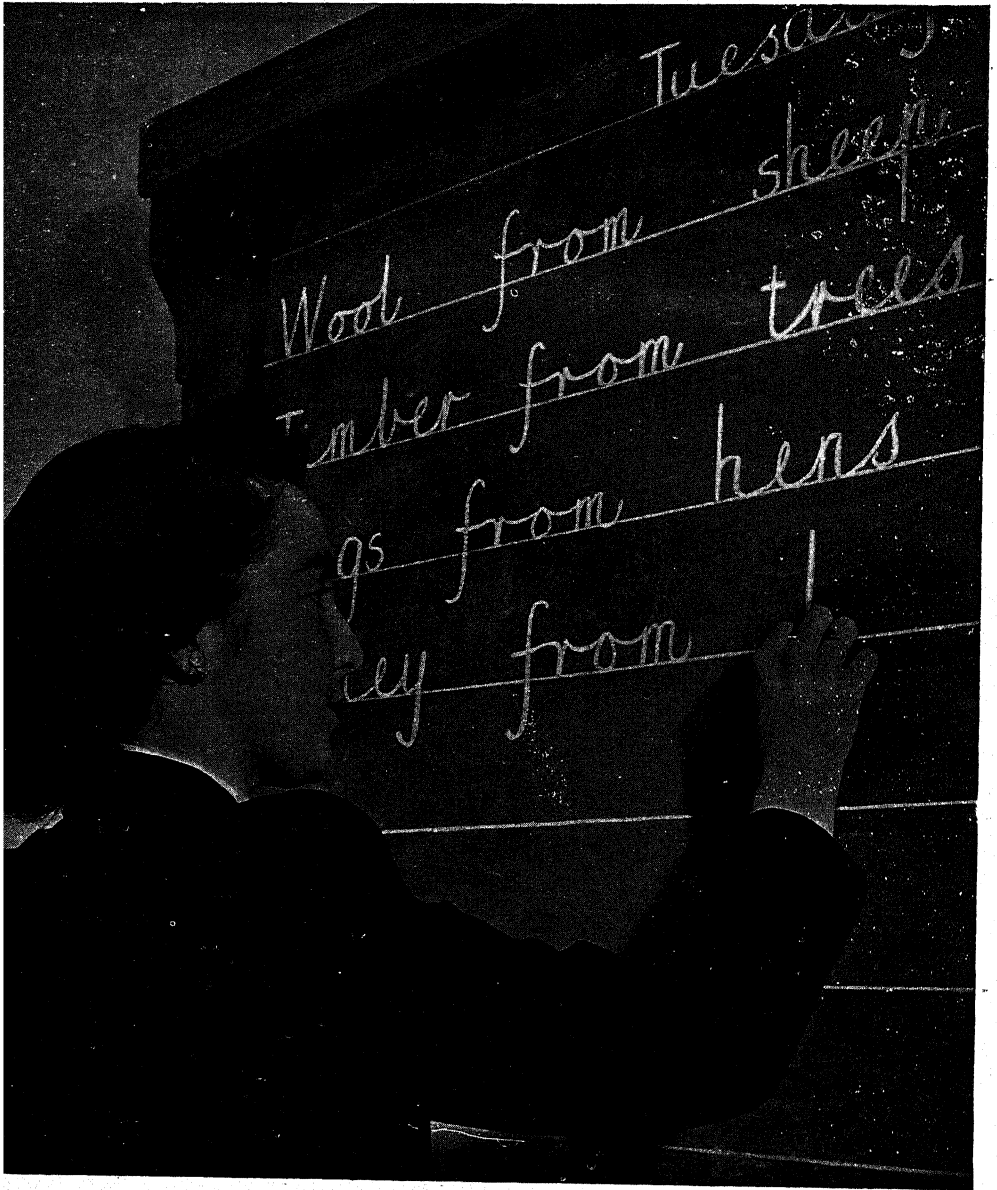 Tuesday
Wool from sheep
Timber from trees
gs from hens
ey from